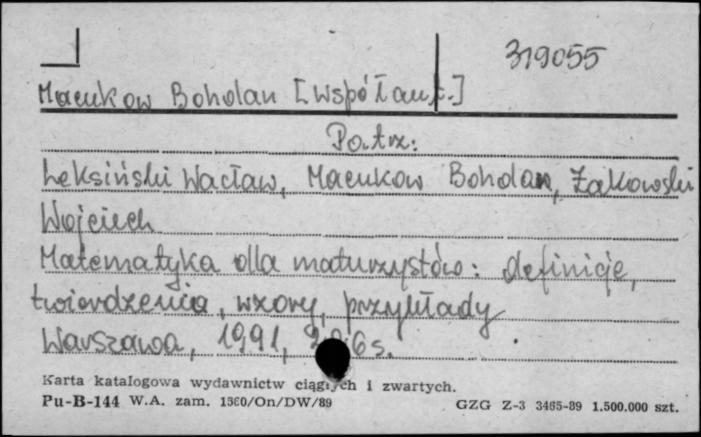 319055
Macukow Bohdan [współaut.]
Patrz:
Leksiński Wacław, Macukow Bohdan, Żakowski
Wojciech
Matematyka dla maturzystów: definicje,
twierdzenia, wzory, przykłady
Warszawa, 1991, s.
Karta katalogowa wydawnictw ciągłych i zwartych.
Pu-B-144 W.A. zam. 1360/On/DW/89
GZG Z-3 3465-89 1.500.000 szt.